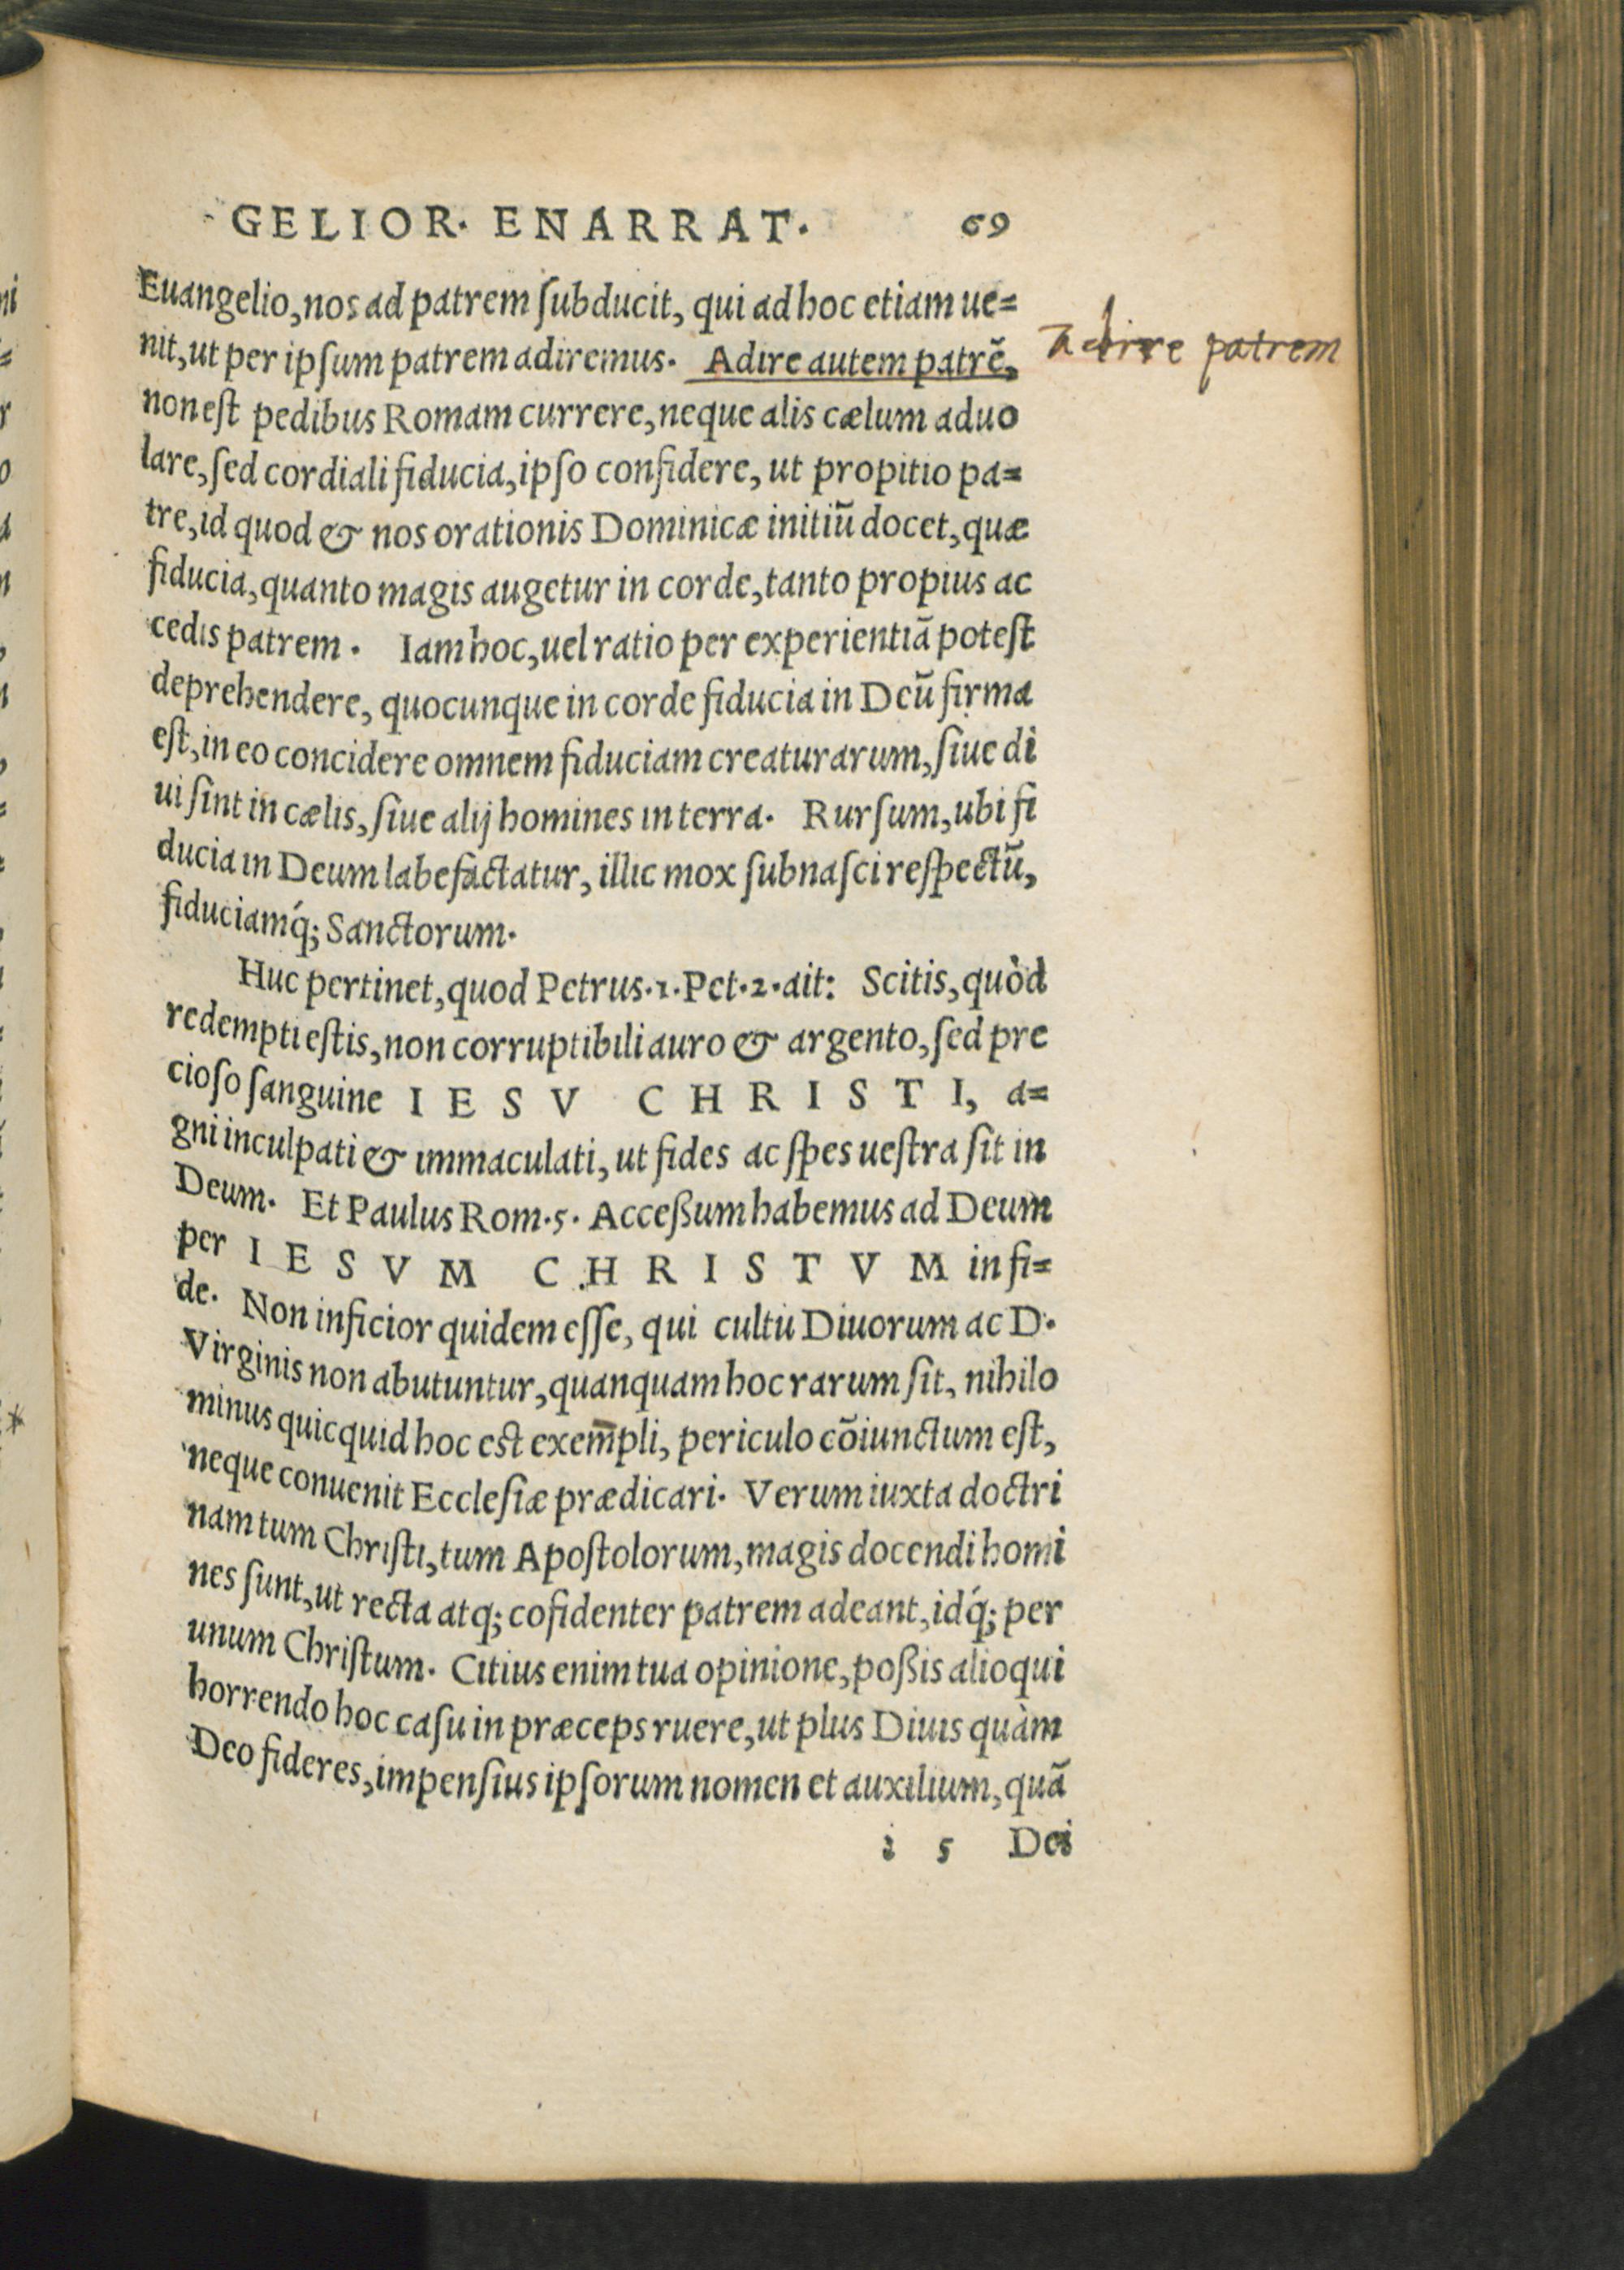 GELIOR. ENARRAT. 69
Euangelio, nos ad patrem ſubducit, qui ad hoc etiam ue=
nit, ut per ipſum patrem adiremus. Adire autem patrē,
Adire patrem
non eſt pedibus Romam currere, neque alis cælum aduo
lare, ſed cordiali fiducia, ipſo confidere, ut propitio pa=
tre, id quod & nos orationis Dominicæ initiū docet, quæ
fiducia, quanto magis augetur in corde, tanto propius ac
cedis patrem. Iam hoc, uel ratio per experientiā poteſt
deprehendere, quocunque in corde fiducia in Deū firma
eſt, in eo concidere omnem fiduciam creaturarum, ſiue di
ui ſint in cælis, ſiue alij homines in terra. Rurſum, ubi fi
ducia in Deum labefactatur, illic mox ſubnaſci reſpectū,
fiduciamq́; Sanctorum.
Huc pertinet, quod Petrus.1.Pet.2.ait: Scitis, quòd
redempti eſtis, non corruptibili auro & argento, ſed pre
cioſo ſanguine IESV CHRISTI, a=
gni inculpati & immaculati, ut fides ac ſpes ueſtra ſit in
Deum. Et Paulus Rom.5. Acceßum habemus ad Deum
per IESVM CHRISTVM in fi=
de. Non inficior quidem eſſe, qui cultu Diuorum ac D.
Virginis non abutuntur, quanquam hoc rarum ſit, nihilo
minus quicquid hoc est exem̄pli, periculo cōiunctum eſt,
neque conuenit Eccleſiæ prædicari. Verum iuxta doctri
nam tum Chriſti, tum Apoſtolorum, magis docendi homi
nes ſunt, ut recta atq; cofidenter patrem adeant, idq́; per
unum Chriſtum. Citius enim tua opinione, poßis alioqui
horrendo hoc caſu in præceps ruere, ut plus Diuis quàm
Deo fideres, impenſius ipſorum nomen et auxilium, quā
i 5 Dei